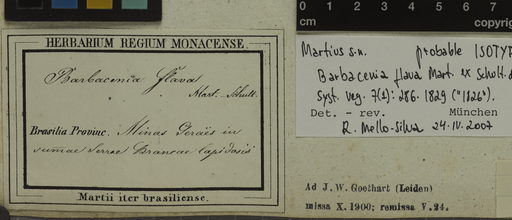 0
cm
copyrig
HERBARIUM REGIUM MONACENSE.
Barbacenia flava
Mart. Schult.
Brasilia Provinc. Minas Geraës in
summae Serrae Brancae lapidosis
Martii iter brasiliense.
Martius s.n. probable ISOTYP
Barbacenia flava Mart. ex Schult.
Syst. veg. 7(1): 286. 1829 ("1826").
Det. - rev. München
R. Mello-Silva 24.IV.2007
Ad J. W. Goethart (Leiden)
missa X.1900; remissa V.24.